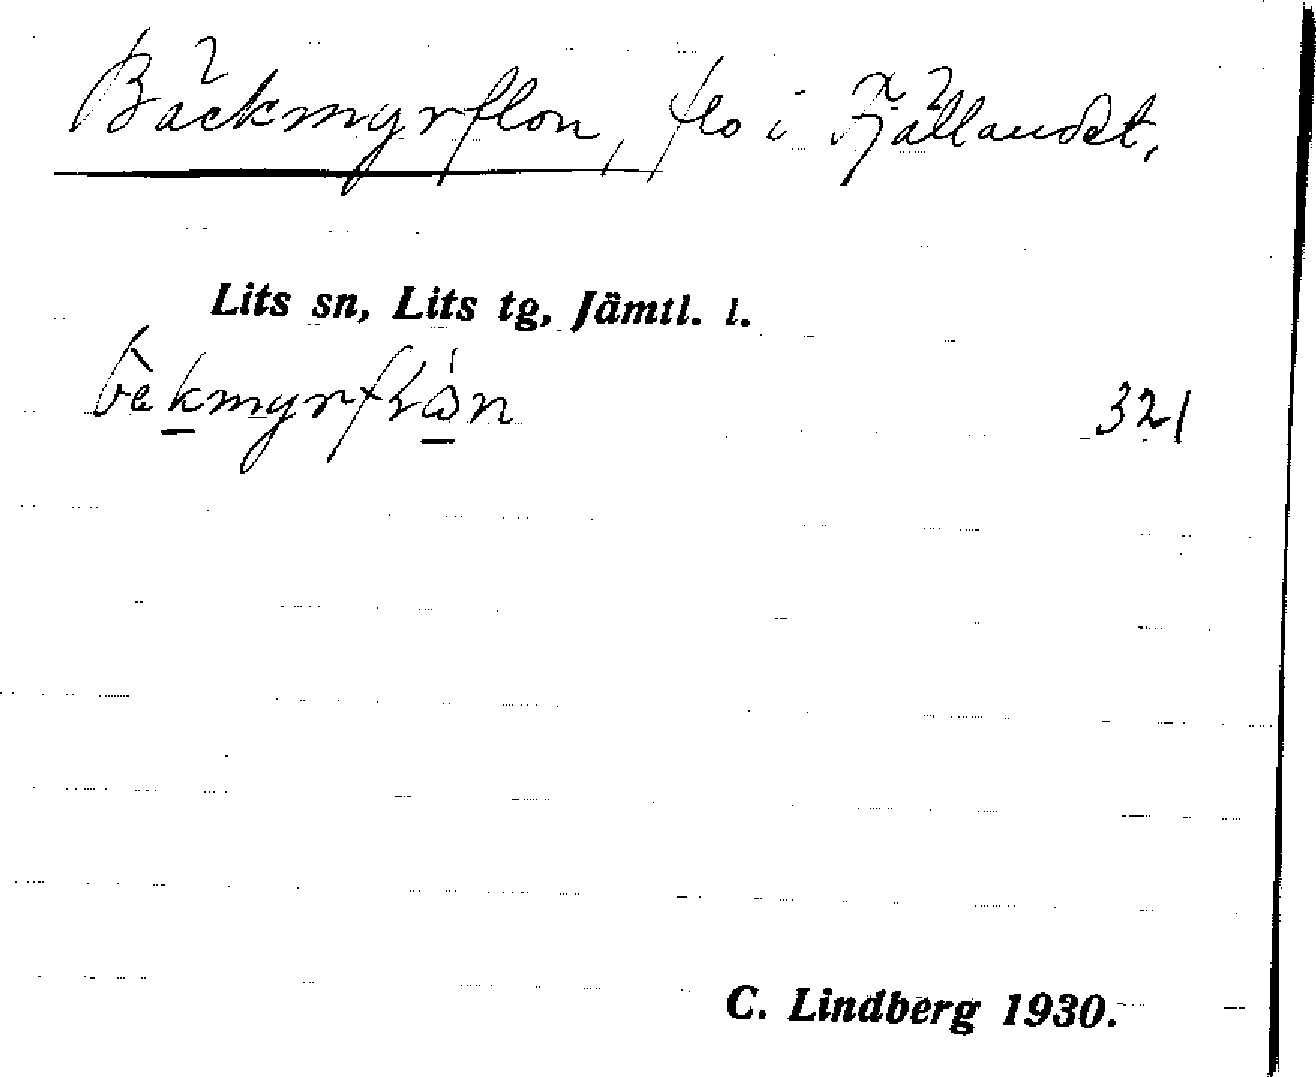 Bäckmyrflon, flo i Fjällandet,
Lits sn, Lits tg, Jämtl. l.
321
C. Lindberg 1930.